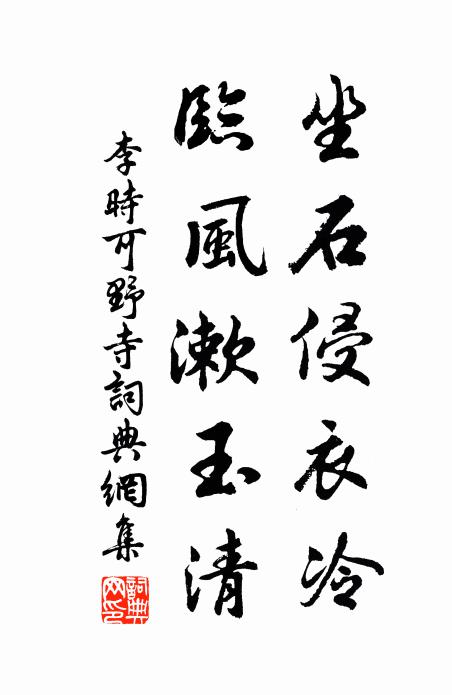 坐石侵衣冷
臨風漱玉清
李時可野寺詞典網集
詞典网印